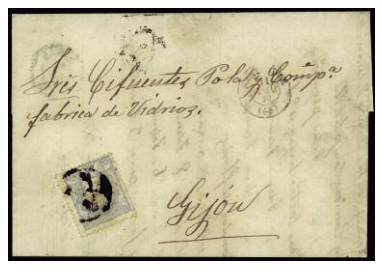 Sres Cifuentes, Pola y Compª
fabrica de Vidrios.
Gijón